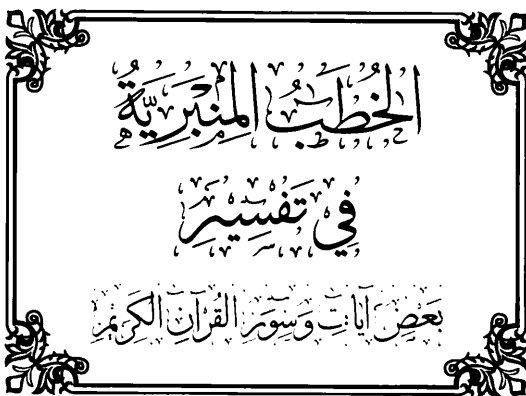 الخُطَبُ المِنْبَرِيَّةُ
فِي تَفْسِيرِ
بَعْضِ آيَاتٍ وَسُوَرِ القُرْآنِ الكَرِيْمِ